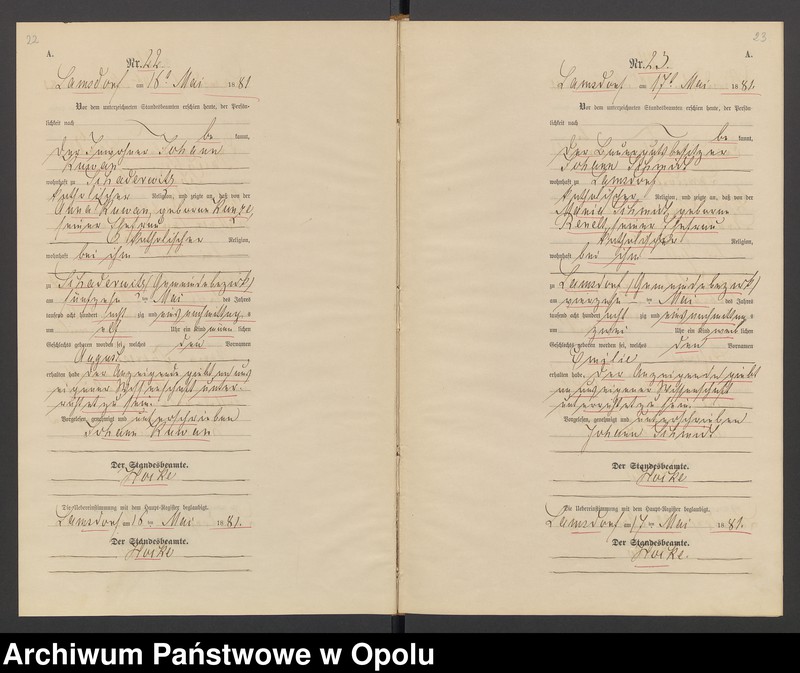 22
A.
Nr. 22.
Lamsdorf am 16n Mai 1881
Vor dem unterzeichneten Standesbeamten erschien heute, der Persön-
lichkeit nach be kannt,
der Inwohner Johann
wohnhaft zu Schaderwitz
katholischer Religion, und zeigte an, daß von der
Anna geborne
seiner Ehefrau
katholischer Religion,
wohnhaft bei ihm
zu Schaderwitz (Gemeindebezirk)
am fünfzehn ten Mai des Jahres
tausend acht hundert acht zig und eins Vormittag s
um elf Uhr ein Kind männ lichen
Geschlechts geboren worden sei, welches den Vornamen
August
erhalten habe. Der Anzeigende giebt an aus
eigener Wissenschaft unter-
richtet zu sein.
Vorgelesen, genehmigt und unterschrieben
Johann
Der Standesbeamte.
Hocke
Die Uebereinstimmung mit dem Haupt-Register beglaubigt.
Lamsdorf am 16 ten Mai 1881.
Der Standesbeamte.
Hocke
23
A.
Nr. 23.
Lamsdorf am 17n Mai 1881.
Vor dem unterzeichneten Standesbeamten erschien heute, der Persön-
lichkeit nach be kannt,
der Bauergutsbesitzer
Johann Schmidt
wohnhaft zu Lamsdorf
katholischer Religion, und zeigte an, daß von der
Maria Schmidt, geborne
seiner Ehefrau
katholischer Religion,
wohnhaft bei ihm
zu Lamsdorf (Gemeindebezirk)
am vierzehn ten Mai des Jahres
tausend acht hundert acht zig und eins Vormittag s
um zwei Uhr ein Kind weib lichen
Geschlechts geboren worden sei, welches den Vornamen
Emilie
erhalten habe. Der Anzeigende giebt
an aus eigener Wissenschaft
unterrichtet zu sein.
Vorgelesen, genehmigt und unterschrieben
Johann Schmidt
Der Standesbeamte.
Hocke
Die Uebereinstimmung mit dem Haupt-Register beglaubigt.
Lamsdorf am 17 ten Mai 1881.
Der Standesbeamte.
Hocke.
Archiwum Państwowe w Opolu